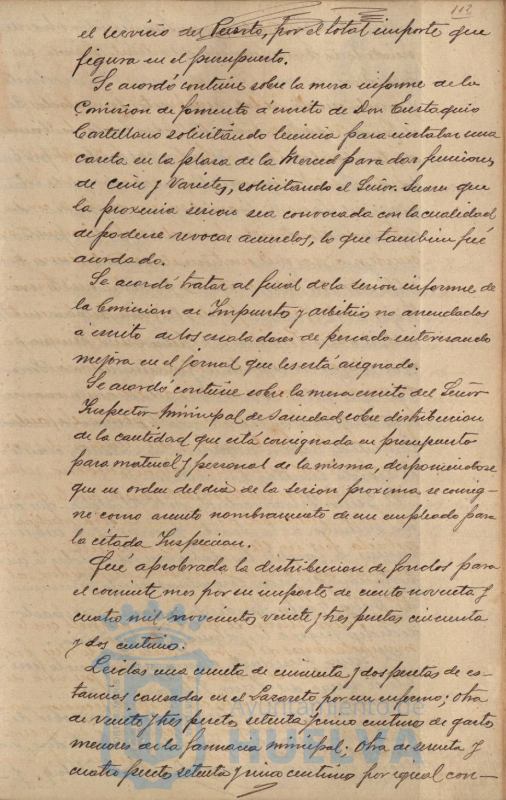 112
el servicio del Puerto, por el total importe que
figura en el presupuesto.
Se acordó continúe sobre la mesa informe de la
Comision de fomento á escrito de Don Eustaquio
Castellano solicitando licencia para instalar una
caseta en la plaza de la Merced para dar funciones
de Cine y Varietes, solicitando el Señor Suarez que
la proxima sesion sea convocada con la cualidad
de poderse revocar acuerdos, lo que tambien fué
acordado.
Se acordó tratar al final de la sesion informe de
la Comision de Impuestos y arbitrios no arrendados
á escrito de los escaladores de pescado interesando
mejora en el jornal que les está asignado.
Se acordó continúe sobre la mesa escrito del Señor
Inspector Municipal de Sanidad sobre distribucion
de la cantidad que está consignada en presupuesto
para material y personal de la misma, disponiendose
que en orden del dia de la sesion proxima se consig-
ne como asunto nombramiento de un empleado para
la citada Inspeccion.
Fué aprobada la distribucion de fondos para
el corriente mes por su importe de ciento noventa y
cuatro mil novecientos veinte y tres pesetas cincuenta
y dos centimos.
Leidas una cuenta de cincuenta y dos pesetas de es-
tancias causadas en el Lazareto por un enfermo; Otra
de veinte y tres pesetas setenta y cinco centimos de gastos
menores de la farmacia municipal; Otra de sesenta y
cuatro pesetas setenta y cinco centimos por igual con-
Ayuntamiento de
HUELVA